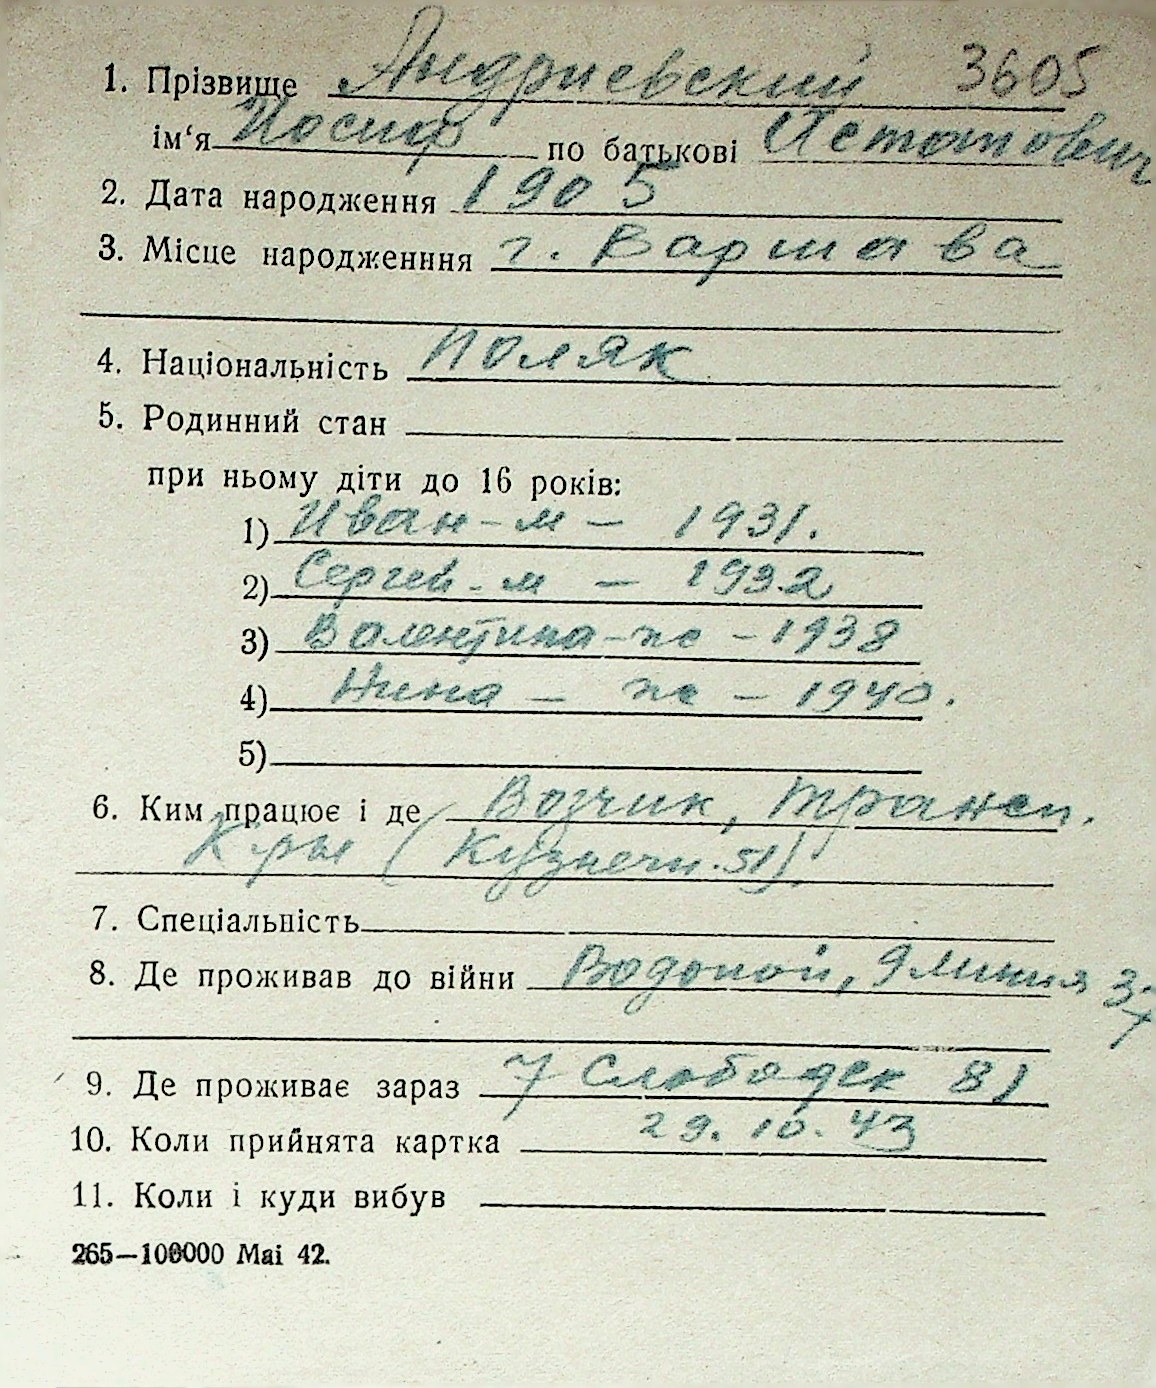 1. Прізвище Андриевский 3605
ім‘я Иосиф по батькові Астапович
2. Дата народження 1905
3. Місце народженння г. Варшава
4. Національність поляк
5. Родинний стан
при ньому діти до 16 років:
1) Иван - м - 1931.
2) Сергей - м - 1932
3) Валентина - ж - 1938
4) Нина - ж - 1940.
5)
6. Ким працює і де Возчик, трансп.
(Кузнечн. 51)
7. Спеціальність
8. Де проживав до війни Водопой, 9 линия 37
9. Де проживає зараз 7 Слободск 81
10. Коли прийнята картка 29.10.43
11. Коли і куди вибув
265—100000 Mai 42.